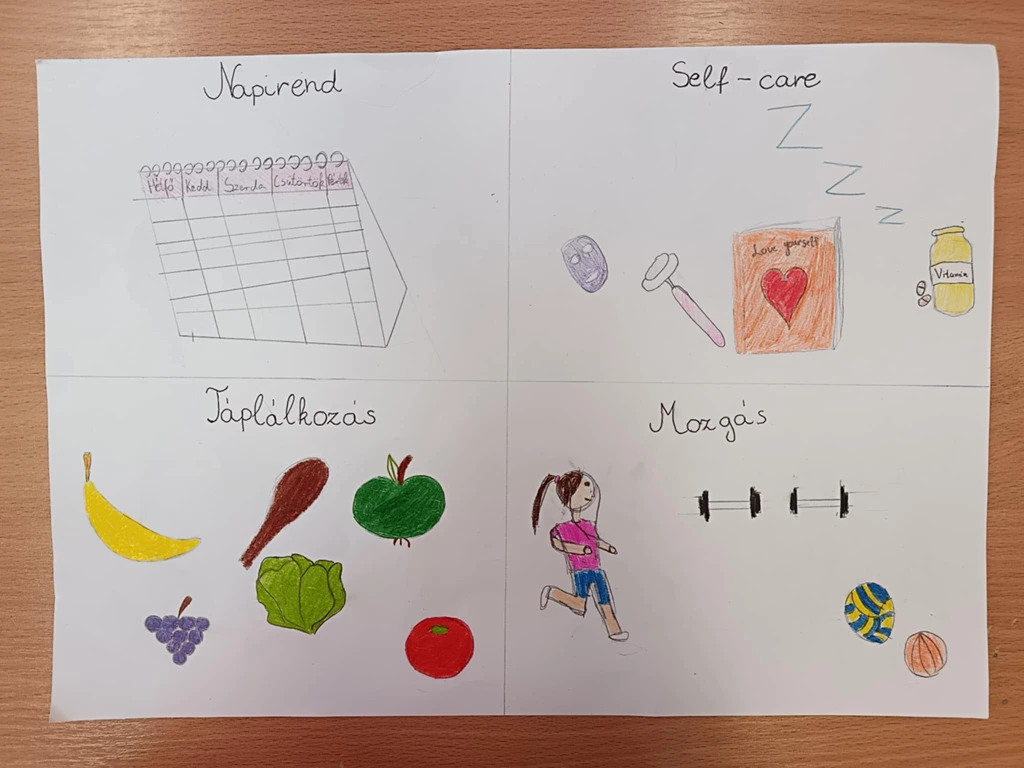 Napirend
Hétfő Kedd Szerda Csütörtök Péntek
Self-care
Z
Z
Z
Love yourself
Vitamin
Táplálkozás
Mozgás